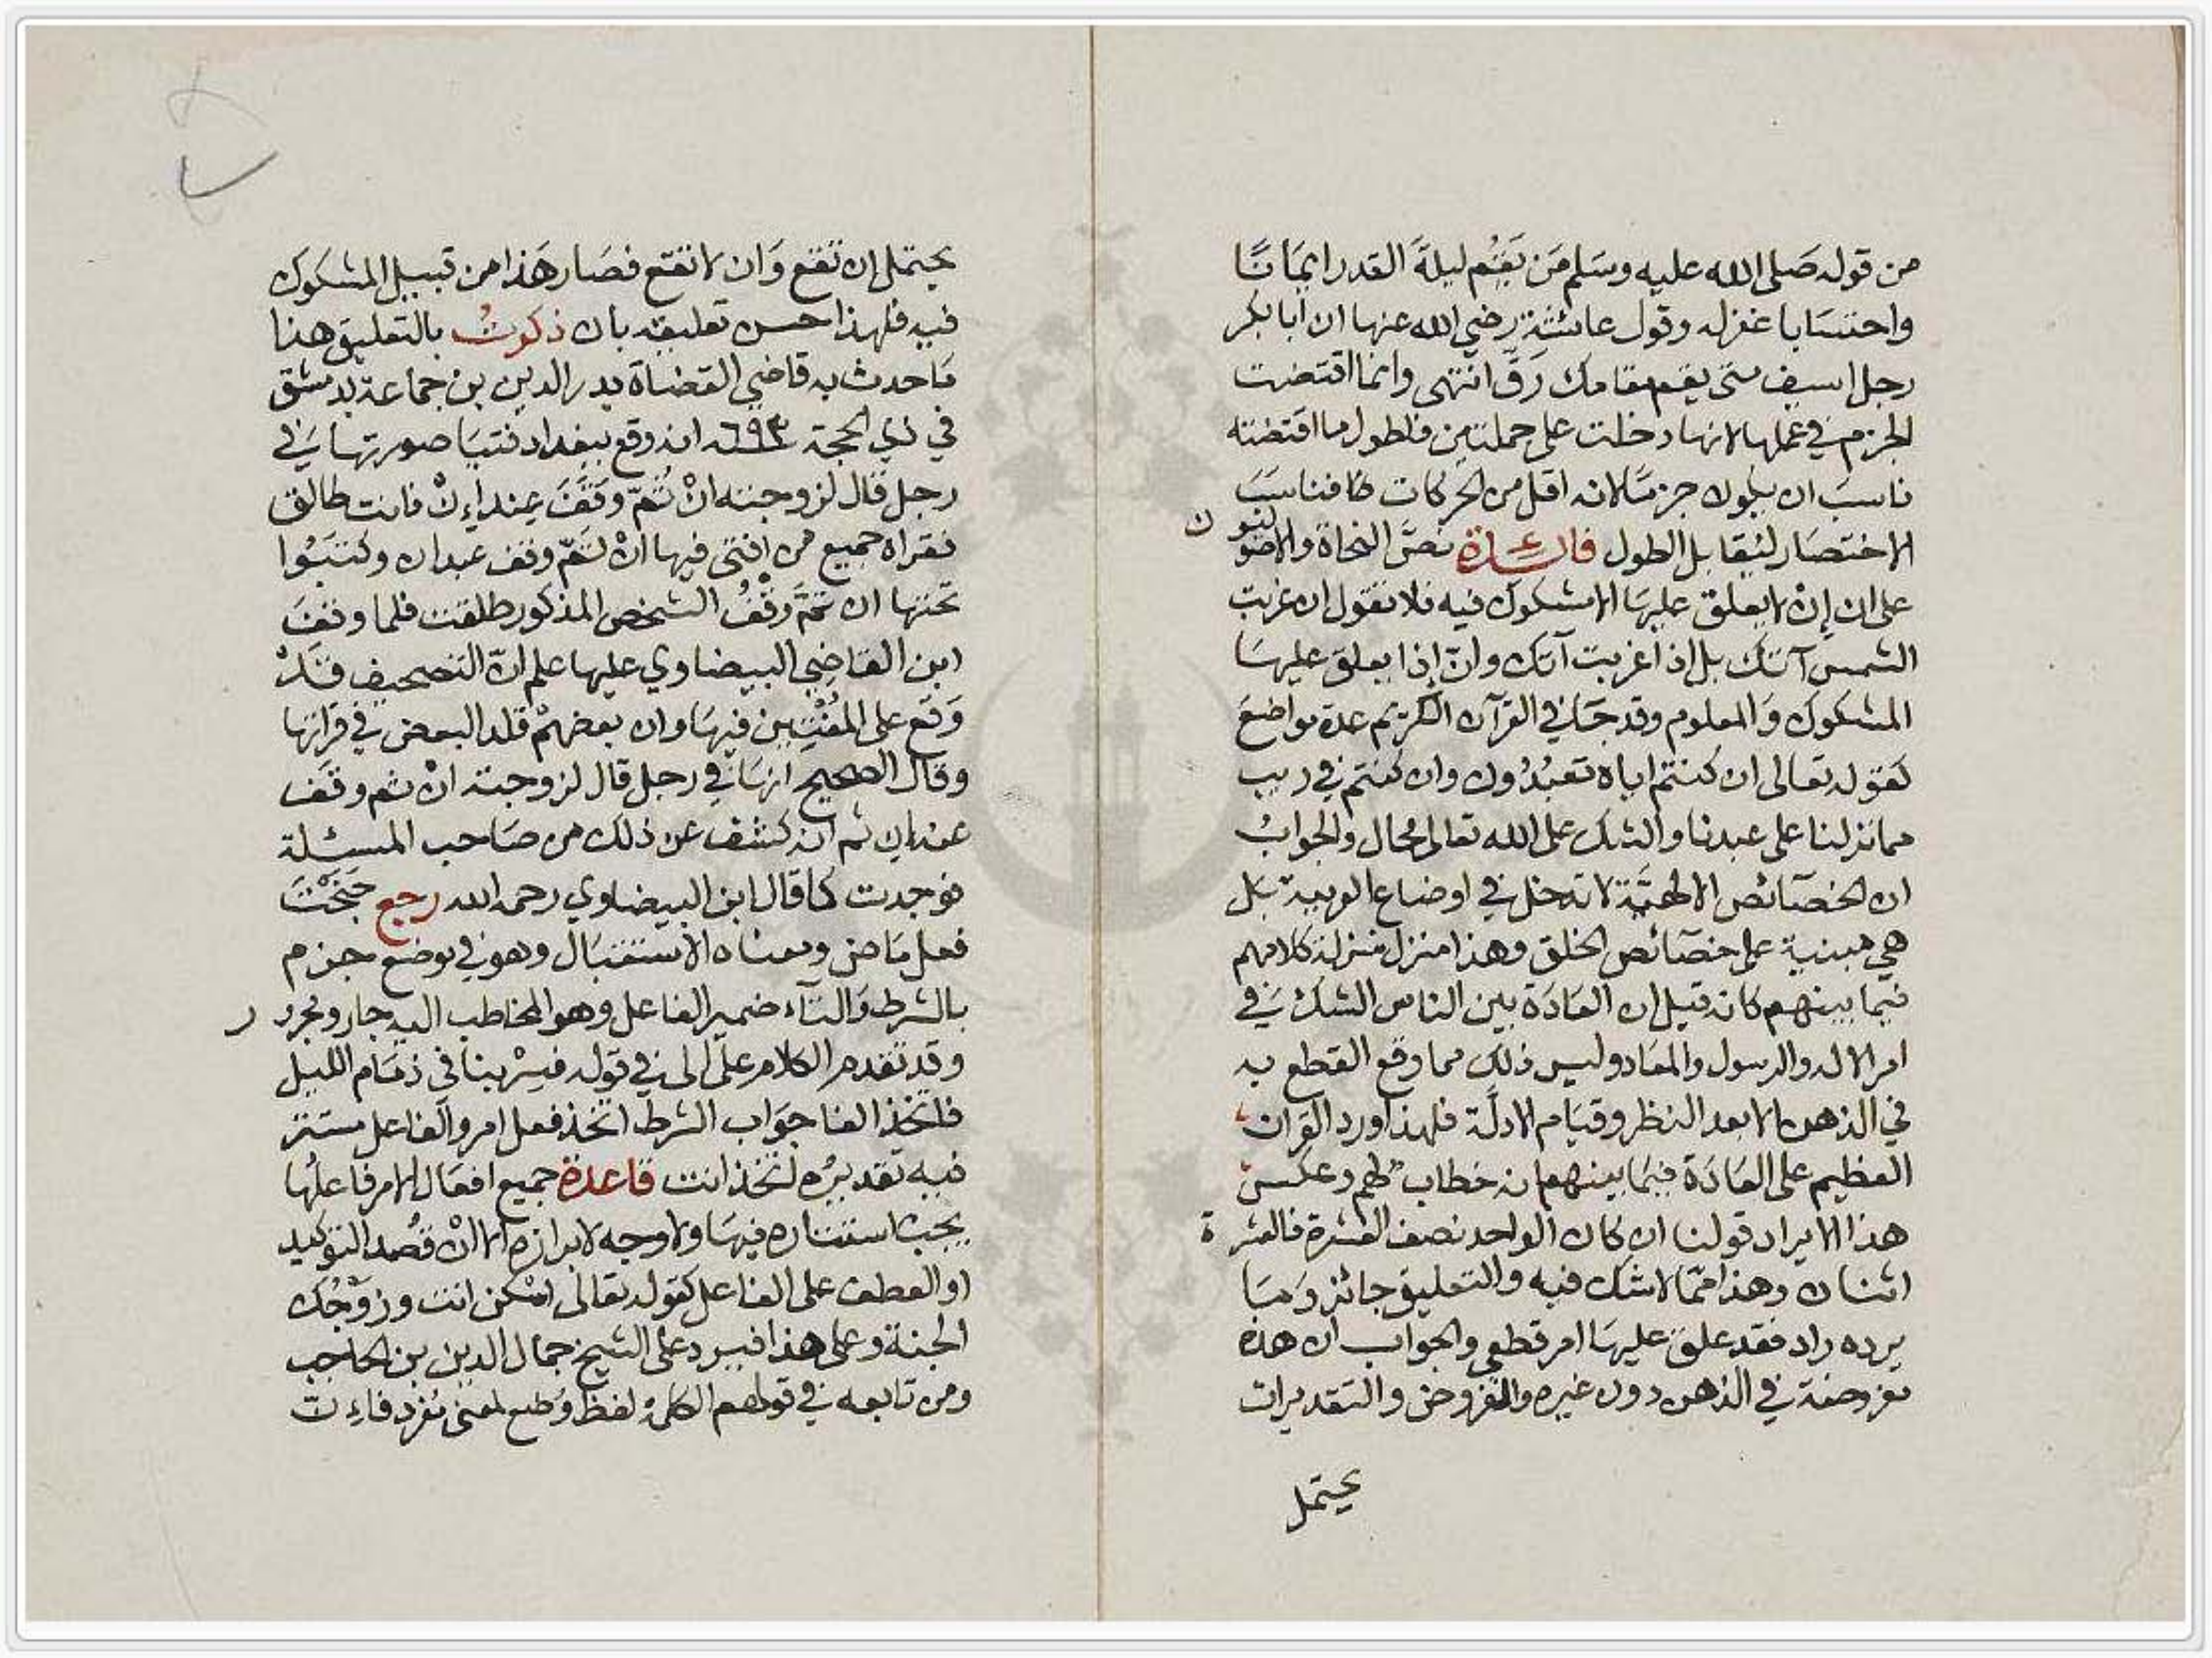 من قوله صَلى الله عليه وسَلم مَن يَقُم ليلةَ القدر ايمَانًا
واحتسَابا غفر له وقول عائشة رضي الله عنها ان ابا بكر
رجل اسيف متى يقم مقامك رَقَّ انتهى وانما اقتضت
الجزم في عملها لانها دخلت على جملتين فلطول ما اقتضته
ناسبَ ان يكون جزمًا لانه اقل من الحركات فناسَبَ
الاختصَار ليقابل الطول فائدة نصَّ النحاة والاصوليون
على ان إنْ لا يعلق عليهَا الا مشكوك فيه فلا تقول ان غربت
الشمس آتك بل اذا غربت آتك وانّ إذا يعلق عليهَا
المشكوك وَالمعلوم وقد جَا في القرآن الكريم عدة مواضعَ
كقوله تعالى ان كنتم اياه تعبُدُون وان كنتم في ريب
مما نزلنا على عبدنا والشك على الله تعالى محال والجوابُ
ان الخصَائص الالهيَّة لا تدخل في اوضاع العربية بَل
هي مبنية على خصَائص الخلق وهذا منزل منزلة كلامهم
فيما بينهم كانه قيل ان العَادَة بين الناس الشك فيَ
امر الاله والرسول والمعَاد وليس ذلك مما وقع القطع به
في الذهن الا بعد النظر وقيَام الادلَّة فلهذا ورد القران
العظيم على العَادَة فيمَا بينهم انه خطاب لهم وعكسُ
هذا الايراد قولنا ان كان الواحد نصف العشرة فالعشرة
اثنان وهذا ممّا لا شك فيه والتعليق جائز وَمَا
يرده راد فقد علق عليهَا امر قطعي والجواب ان هذه
مفروضة في الذهن دون غيره والفروض والتقديرات
يحتمل
يحتمل ان تقع وَان لا تقع فصَار هَذا من قبيل المشكوك
فيه فلهذا حسن تعليقه بان ذكرتُ بالتعليق هنا
مَا حدث به قاضي القضاة بدر الدين بن جماعة بدمشق
في ذي الحجة ٦٩٣ انه وقع ببغداد فتيَا صورتها فيَ
رجل قال لزوجته انْ تمّ وقَفَ فانت طالق
فقراه جميع من افتى فيها انْ تَمّ وقف عبدان وكتبُوا
تحتها ان تمَّ وقفُ الشخص المذكور طلقت فلما وقفَ
ابن القاضِي البيضاوي عليها علم انّ التصحيف قَدْ
وَقع على المُفْتِين فيهَا وان بعضهمْ قلد البعض في قراتها
وقال الصحيح انهَا في رجل قال لزوجته انْ ثم وقَف
ثم انه كشف عن ذلك من صَاحب المسئلة
فوجدت كما قال ابن البيضاوي رحمه الله رجع جَنَحْتَ
فعل مَاض ومعناه الاستقبَال وهو في موضع جزم
بالشرط وَالتآء ضمير الفاعل وهو المخاطب اليه جار ومجرور
وقد تقدم الكلام على الى في قوله فسِرْ بنا في ذمَام الليل
فاتخذ الفا جوَاب الشرط اتخذ فعل امر والفاعل مستتر
فيه تقديرُه لتتخذ انت قاعدة جميع افعَال الامر فاعلُها
يجب استتاره فيهَا ولا وجه لابرازه الا انْ قُصد التوكيد
او العطف على الفاعل كقوله تعالى اسْكن انت وزوجُك
الجنة وعلى هذا فيرد على الشيخ جمال الدين بن الحاجب
ومن تابعه في قولهم الكلمة لفظ وُضع لمعنى مُفرد فاِنّ